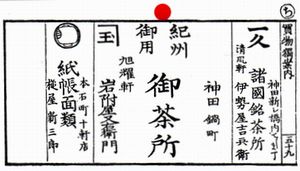 ち
買物獨案内
五十九
一久
諸國銘茶所
神田新し橋内
清風軒
伊勢屋吉兵衛
神田鍋町
御茶所
紀州
御用
玉
旭耀軒
岩附屋又右衛門
本石町十軒店
紙帳面類
新三郎